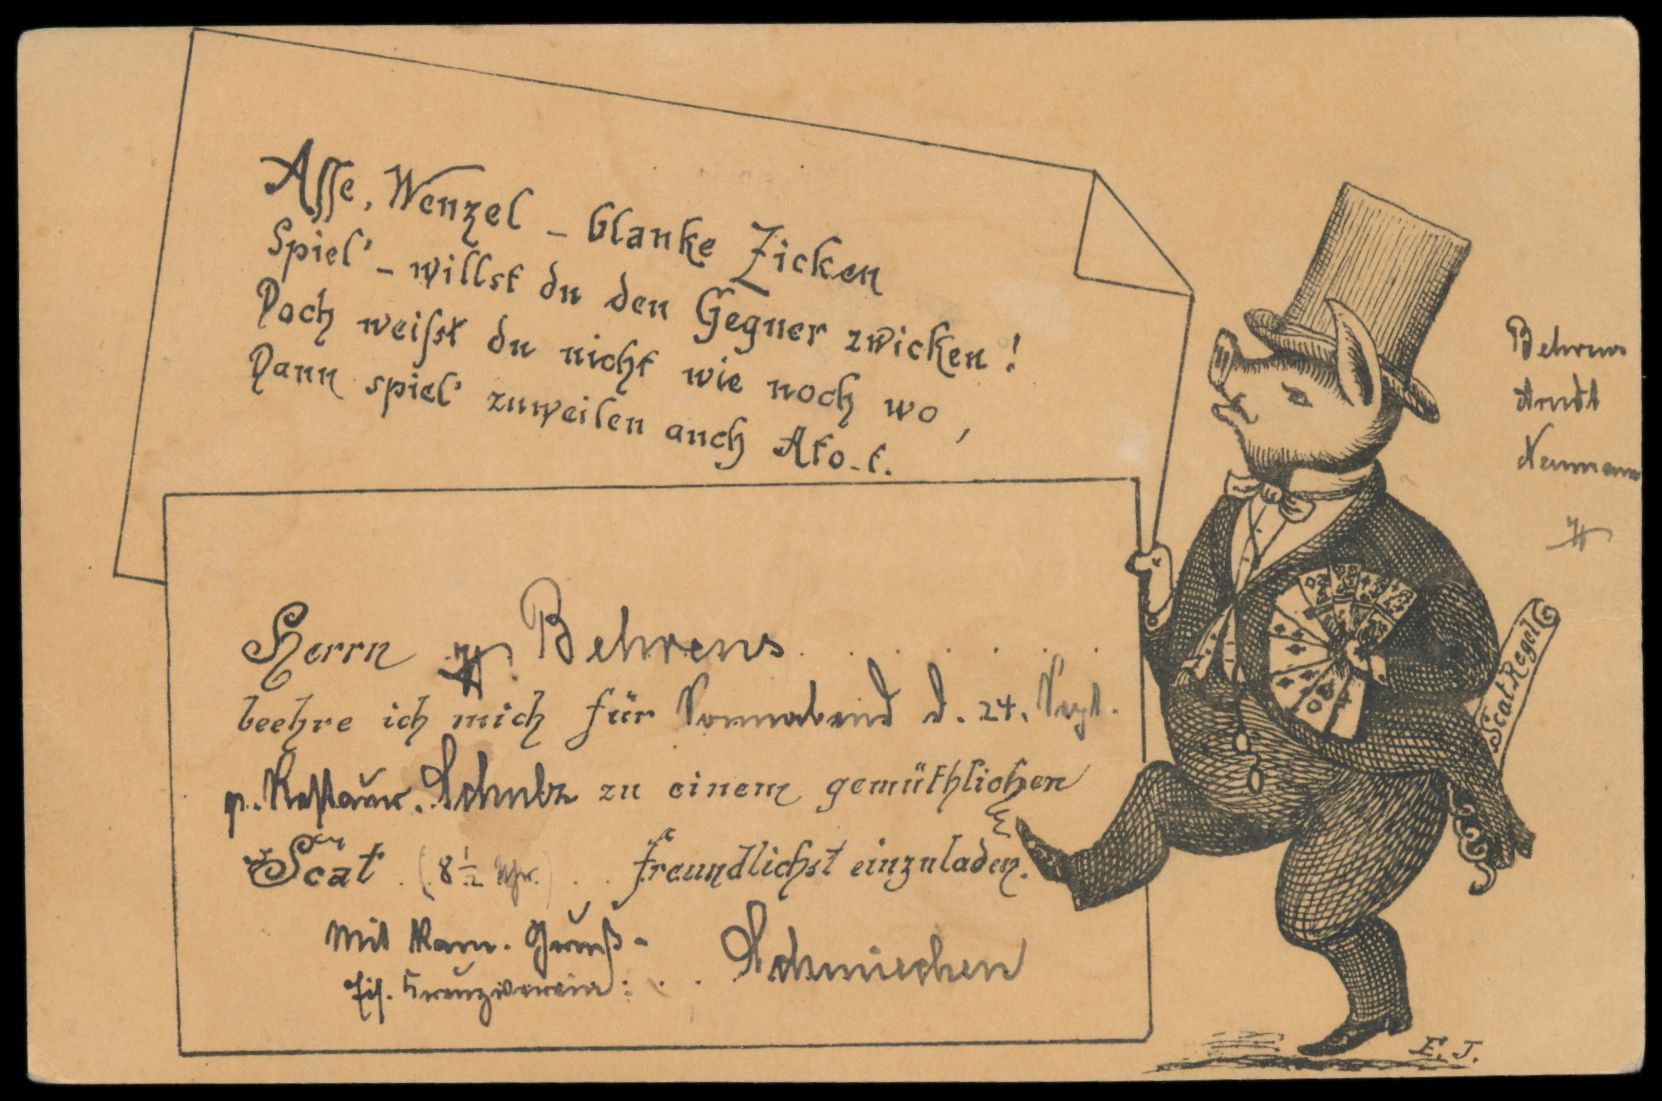 Asse, Wenzel – blanke Zicken
Spiel' – willst du den Gegner zwicken!
Doch weisst du nicht wie noch wo,
Dann spiel' zuweilen auch Ato-t.
Herrn Behrens
beehre ich mich für Sonnabend d. 24. Sept.
Restaur. Schulz zu einem gemüthlichen
Scat (8½ Uhr) freundlichst einzuladen.
Mit Kam. Gruß
Eis. Kreuzverein: Schmiechen
Behrens
Arndt
Neumann
Scat Regel
E. J.